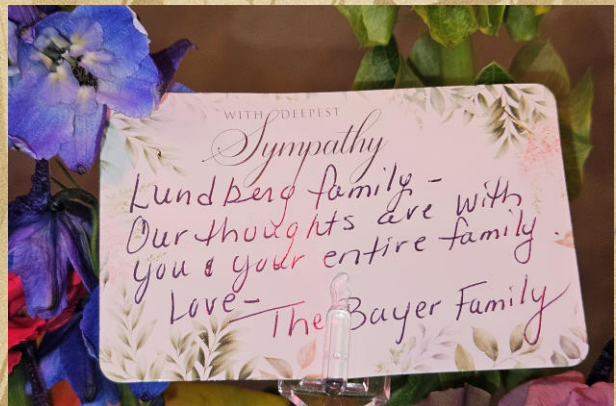 WITH DEEPEST
Sympathy
Lundberg family -
Our thoughts are with
you & your entire family.
Love -
The Bayer Family